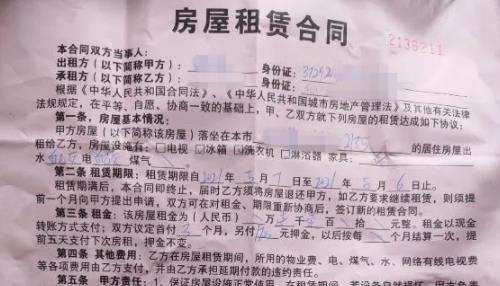 房屋租赁合同
2136211
本合同双方当事人：
出租方（以下简称甲方）： 身份证：
承租方（以下简称乙方）： 身份证：
根据《中华人民共和国合同法》、《中华人民共和国城市房地产管理法》及其他有关法律
法规规定，在平等、自愿、协商一致的基础上，甲、乙双方就下列房屋的租赁达成如下协议：
第一条，房屋基本情况：
甲方房屋（以下简称该房屋）落坐在本市 的居住房屋出
租给乙方，房屋设施有：□电视 冰箱 洗衣机 □淋浴器 家具：
水 电 煤气
第二条 租赁期限：租赁期自2021年5月7日至2021年8月6日止。
租赁期满后，本合同即终止，届时乙方须将房屋退还甲方，如乙方要求继续租赁，则须提
前一个月向甲方提出申请，双方可在对租金、期限重新协商后，签订新的租赁合同。
第三条 租金：该房屋租金为（人民币） 万 仟 百 拾 元整。租金以现金
转账方式支付；双方议定首付3个月，另付 元押金，以后按每 个月结算一次，提
前五天支付下次房租，押金不变。
第四条 其他费用：乙方在房屋租赁期间，所用的物业费、电、煤气、水、网络有线电视费
等各项费用由乙方支付，并由乙方承担延期付款的违约责任。
第五条 甲方责任：1、保证房屋设施正常使用，在租赁期间